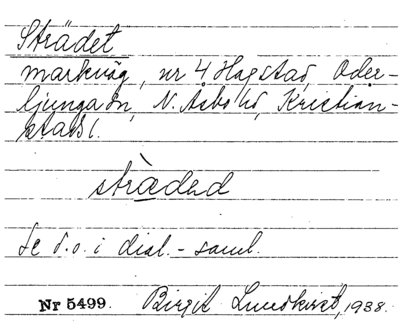 Strädet
markväg, nr 4 Hagstad, Oder-
ljunga sn, N. Åsbo hd, Kristian-
stads l.
sträded
Se d.o. i dial.-saml.
Nr 5499. Birgit Lundkvist, 1938.